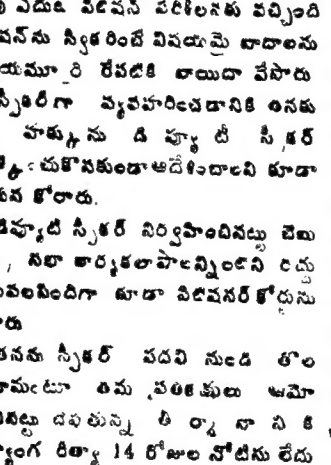 ఎదుట పిటిషన్ పరిశీలనకు వచ్చింది
షన్‌ను స్వీకరించే విషయమై వాదాలను
రేపటికి వాయిదా వేసారు
స్పీకర్‌గా వ్యవహరించడానికి తనకు
హక్కును డిప్యూటీ స్పీకర్
చుకొనకుండా ఆదేశించాలని కూడా
కోరారు.
డిప్యూటి స్పీకర్ నిర్వహించినట్టు చెబు
, సభా కార్యకలాపాలన్నింటిని రద్దు
కూడా పిటిషనర్ కోర్టును
రు
తనను స్పీకర్ పదవి నుండి తొల
తమ ప్రతిపక్షులు ఆమో
చెపుతున్న తీర్మానానికి
రీత్యా 14 రోజుల నోటీసు లేదు